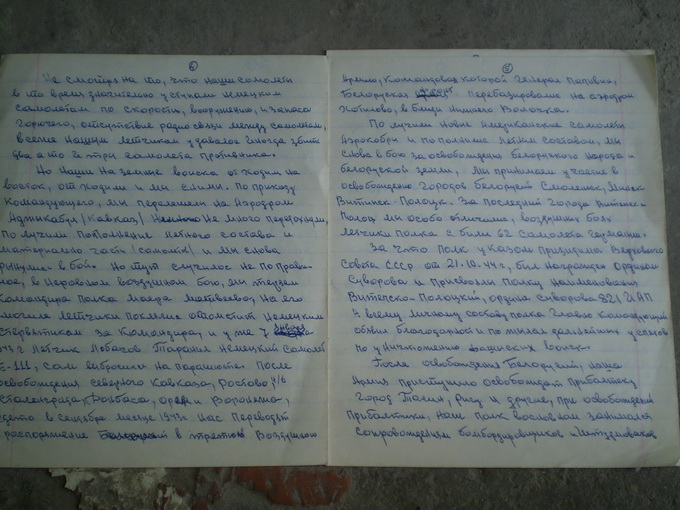 Не смотря на то, что наши самолеты
в то время значительно уступали немецким
самолетам по скорости, вооружению, и запаса
горючего, отсутствие радио связи между самолетам,
все же нашим летчикам удавалось иногда сбить
два а то и три самолета противника.
Но наши наземные войска отходили на
восток, отходили и мы с ними. По приказу
Командующего, мы перелетели на Аэродром
Аджикабул (Кавказ), Не много передохнули,
получили пополнение летного состава и
материально части (самолети) и мы снова
ринулись в бой. Но тут случилось не по прав
ное, в неровном воздушном бою, мы теряем
командира полка майора Матвеева, на его
могиле летчики поклялись отомстить немецким
стервятникам за командира, и уже 7 января
43 г летчик Лобачов таранил немецкий самолет
-111, сам выбросился на парашюте. После
освобождения северного Кавказа, Ростова н/д
Сталинграда, Донбаса, Орел и Воронежа,
в сентябре месяце 1943г. нас переводят
распоряжение в третью воздушною
5
Армию, Командовал которой Генерал Папивин,
Белоруская Перебазирование на аэродром
Хотилово, в близи Вышнего Волочка.
Получили новые Американские самолеты
Аэрокобри и пополнены летным составом, мы
снова в бою за освобождение белоруского народа и
белоруской земли, мы принимали участие в
освобождение городов Белоруссии Смоленск, Минск
Витибск - Полоцк. За последний города Витебск -
Полоцк мы особо отличились, в воздушных боях
летчики полка сбили 62 самолета Германии.
За что полк указом президиума Верховного
Совета СССР от 21.10.44г, был награжден орденом
Суворова и Присвоили полку наименование
Витебско - Полоцкий, ордена Суворова 821 ИАП
и всему личному составу полка Главно командующий
объявил благодарность и пожилал дальнейших успехов
по уничтожению фашиских войск.
После освобождения Белоруссий, наша
Армия приступило освобождать Прибалтику
город Талин, Ригу и другие, при освобождений
Прибалтики, наш полк в основном занимался
сопровождением бомбордировщиков и Штурмовиков